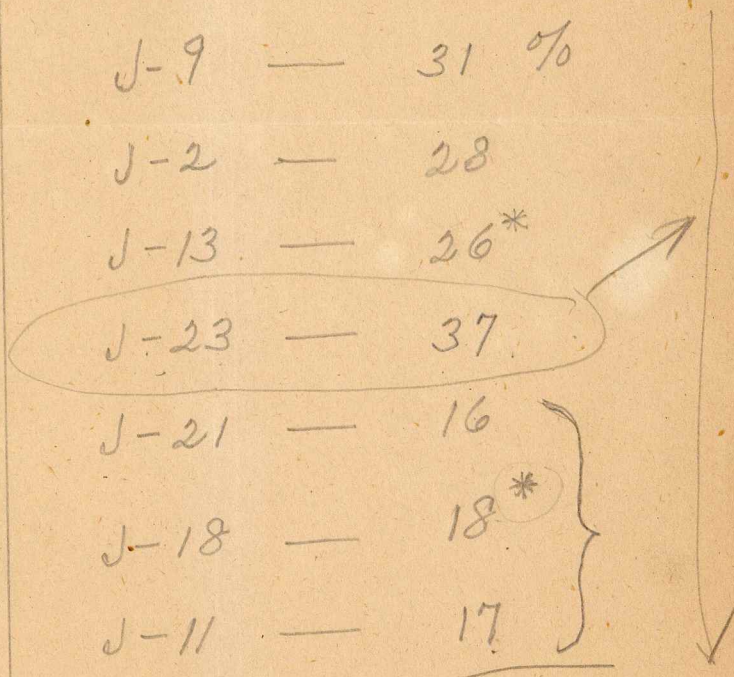 J-9 — 31 %
J-2 — 28
J-13 — 26*
J-23 — 37
J-21 — 16
J-18 — 18*
J-11 — 17